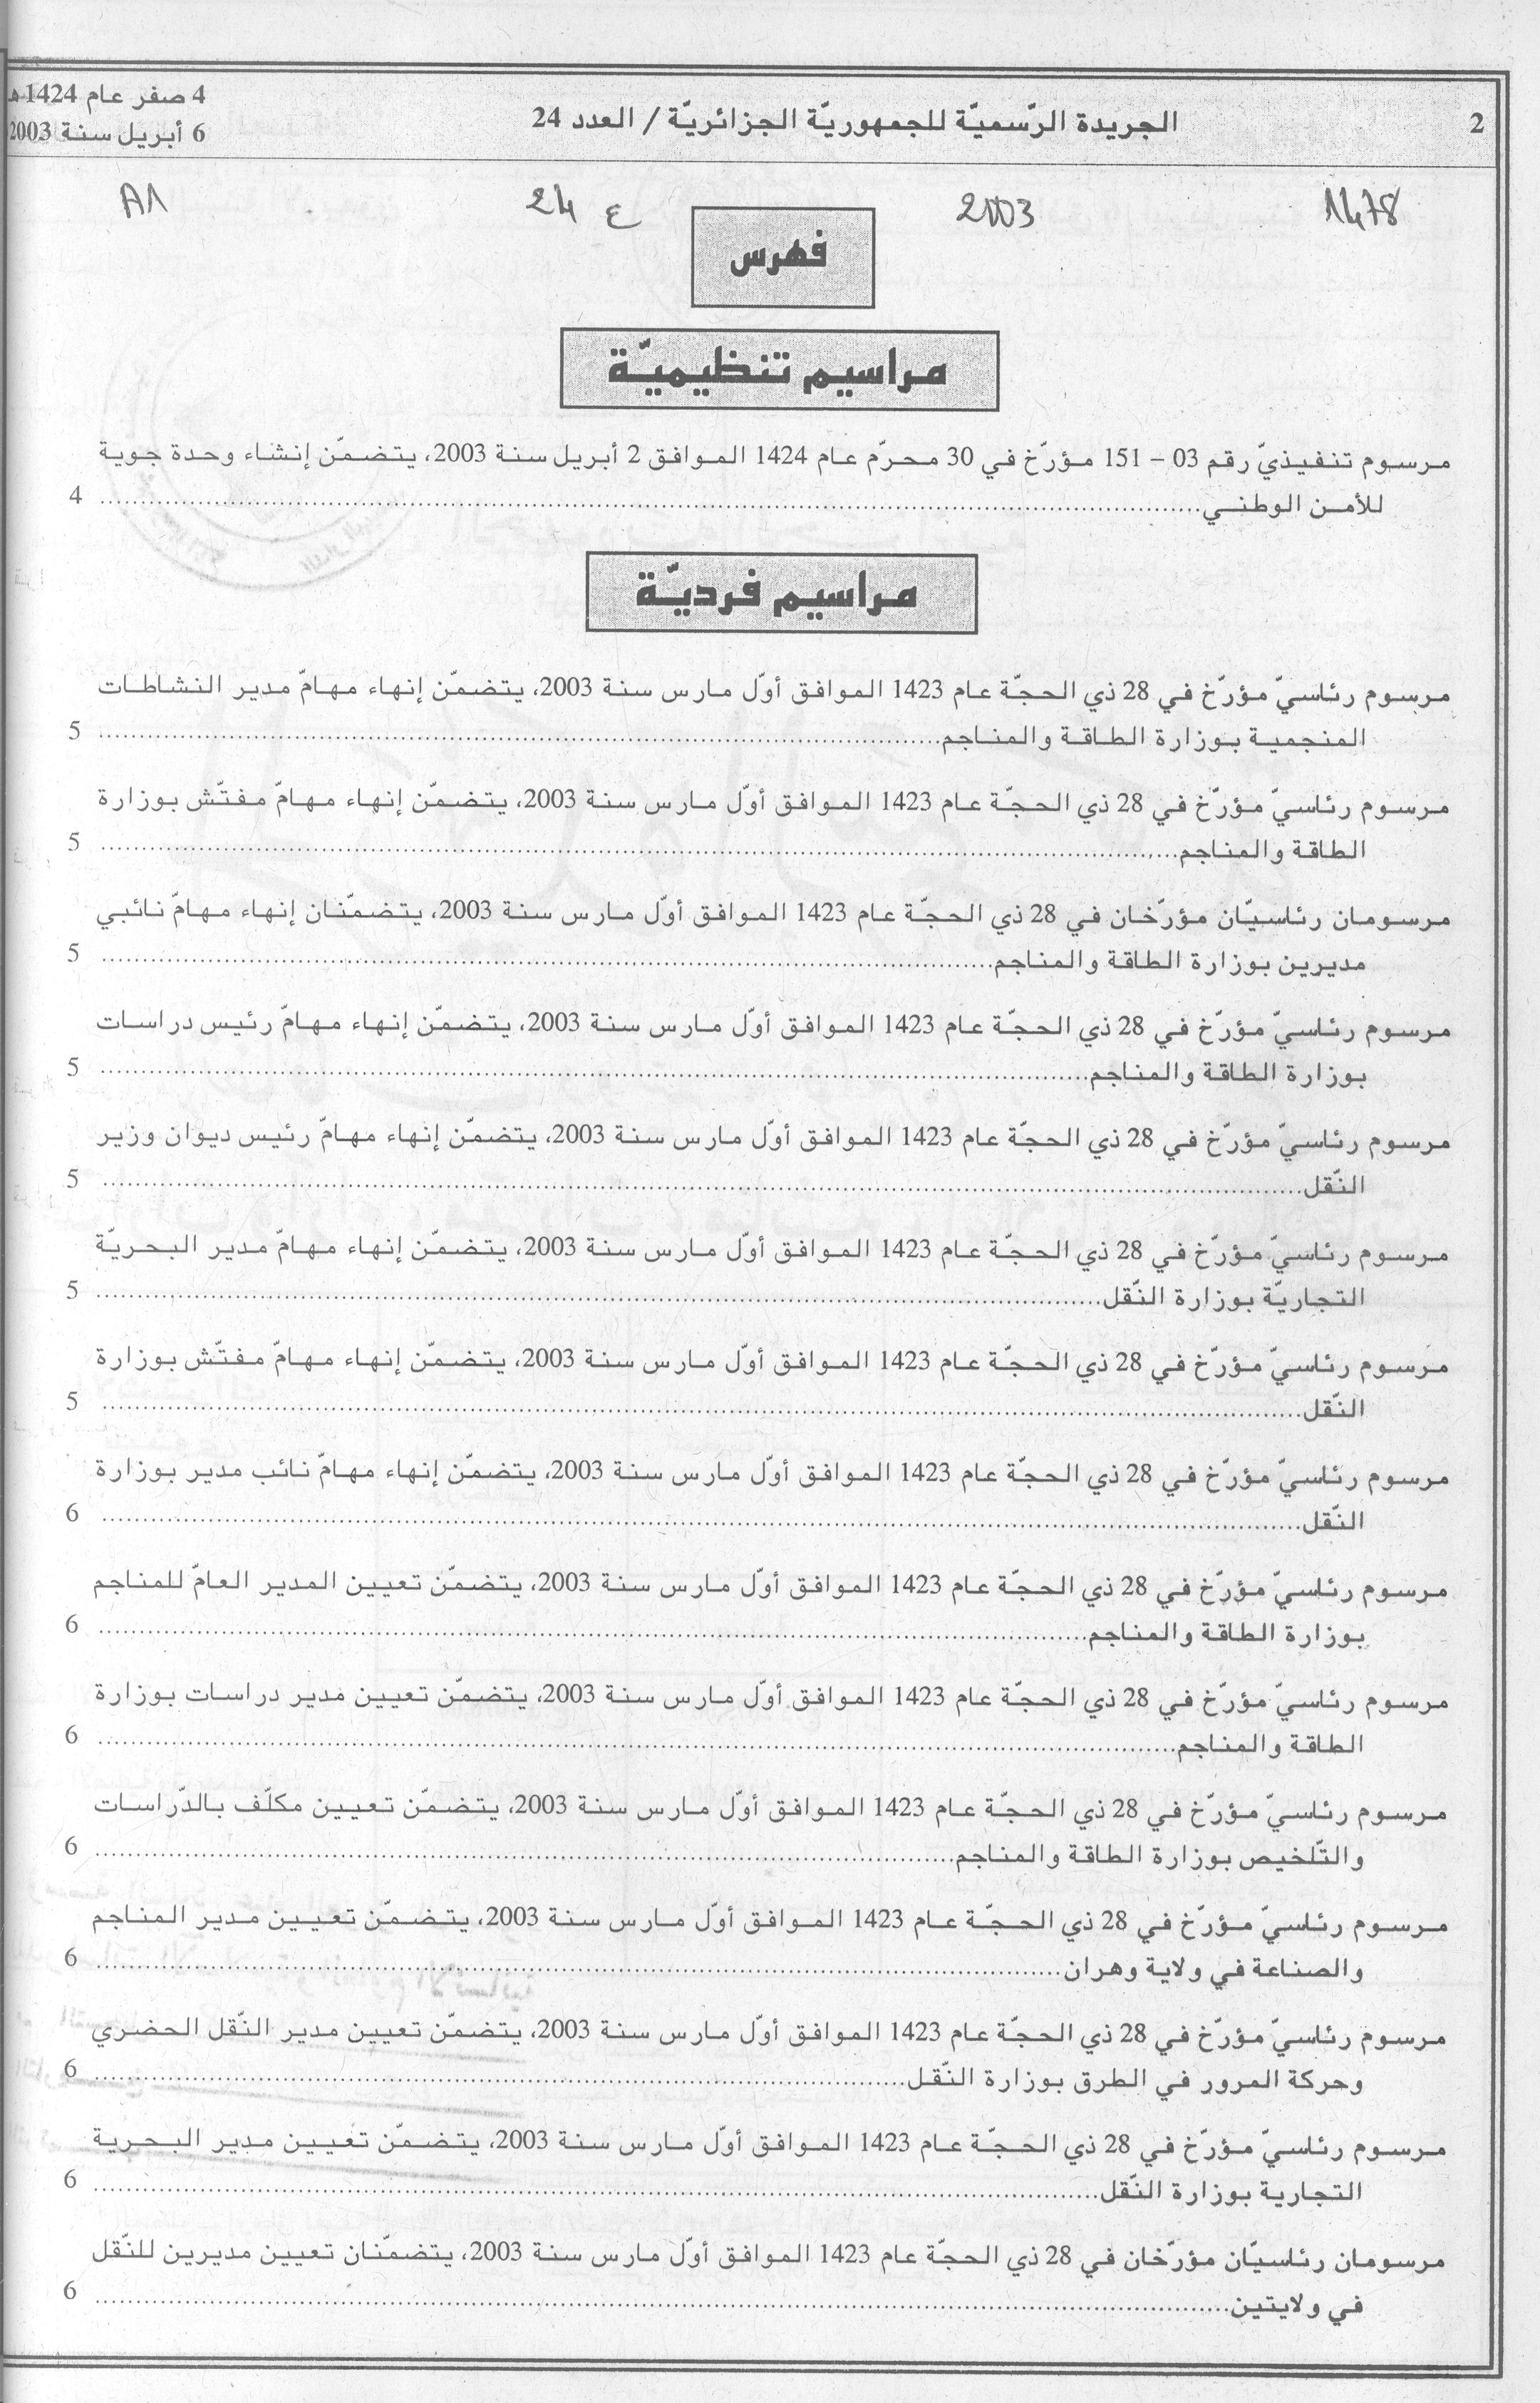 2
الجريدة الرّسميّة للجمهوريّة الجزائريّة / العدد 24
4 صفر عام 1424هـ
6 أبريل سنة 2003
1478
2003
ع 24
A1
فهرس
مراسيم تنظيميّة
مرسوم تنفيذيّ رقم 03 – 151 مؤرّخ في 30 محرّم عام 1424 الموافق 2 أبريل سنة 2003، يتضمّن إنشاء وحدة جوية
للأمن الوطني ........ 4
مراسيم فرديّة
مرسوم رئاسيّ مؤرّخ في 28 ذي الحجّة عام 1423 الموافق أوّل مارس سنة 2003، يتضمّن إنهاء مهامّ مدير النشاطات
المنجمية بوزارة الطاقة والمناجم ........ 5
مرسوم رئاسيّ مؤرّخ في 28 ذي الحجّة عام 1423 الموافق أوّل مارس سنة 2003، يتضمّن إنهاء مهامّ مفتّش بوزارة
الطاقة والمناجم ........ 5
مرسومان رئاسيّان مؤرّخان في 28 ذي الحجّة عام 1423 الموافق أوّل مارس سنة 2003، يتضمّنان إنهاء مهامّ نائبي
مديرين بوزارة الطاقة والمناجم ........ 5
مرسوم رئاسيّ مؤرّخ في 28 ذي الحجّة عام 1423 الموافق أوّل مارس سنة 2003، يتضمّن إنهاء مهامّ رئيس دراسات
بوزارة الطاقة والمناجم ........ 5
مرسوم رئاسيّ مؤرّخ في 28 ذي الحجّة عام 1423 الموافق أوّل مارس سنة 2003، يتضمّن إنهاء مهامّ رئيس ديوان وزير
النّقل ........ 5
مرسوم رئاسيّ مؤرّخ في 28 ذي الحجّة عام 1423 الموافق أوّل مارس سنة 2003، يتضمّن إنهاء مهامّ مدير البحريّة
التجاريّة بوزارة النّقل ........ 5
مرسوم رئاسيّ مؤرّخ في 28 ذي الحجّة عام 1423 الموافق أوّل مارس سنة 2003، يتضمّن إنهاء مهامّ مفتّش بوزارة
النّقل ........ 5
مرسوم رئاسيّ مؤرّخ في 28 ذي الحجّة عام 1423 الموافق أوّل مارس سنة 2003، يتضمّن إنهاء مهامّ نائب مدير بوزارة
النّقل ........ 6
مرسوم رئاسيّ مؤرّخ في 28 ذي الحجّة عام 1423 الموافق أوّل مارس سنة 2003، يتضمّن تعيين المدير العامّ للمناجم
بوزارة الطاقة والمناجم ........ 6
مرسوم رئاسيّ مؤرّخ في 28 ذي الحجّة عام 1423 الموافق أوّل مارس سنة 2003، يتضمّن تعيين مدير دراسات بوزارة
الطاقة والمناجم ........ 6
مرسوم رئاسيّ مؤرّخ في 28 ذي الحجّة عام 1423 الموافق أوّل مارس سنة 2003، يتضمّن تعيين مكلّف بالدّراسات
والتّلخيص بوزارة الطاقة والمناجم ........ 6
مرسوم رئاسيّ مؤرّخ في 28 ذي الحجّة عام 1423 الموافق أوّل مارس سنة 2003، يتضمّن تعيين مدير المناجم
والصناعة في ولاية وهران ........ 6
مرسوم رئاسيّ مؤرّخ في 28 ذي الحجّة عام 1423 الموافق أوّل مارس سنة 2003، يتضمّن تعيين مدير النّقل الحضري
وحركة المرور في الطرق بوزارة النّقل ........ 6
مرسوم رئاسيّ مؤرّخ في 28 ذي الحجّة عام 1423 الموافق أوّل مارس سنة 2003، يتضمّن تعيين مدير البحرية
التجارية بوزارة النّقل ........ 6
مرسومان رئاسيّان مؤرّخان في 28 ذي الحجّة عام 1423 الموافق أوّل مارس سنة 2003، يتضمّنان تعيين مديرين للنّقل
في ولايتين ........ 6